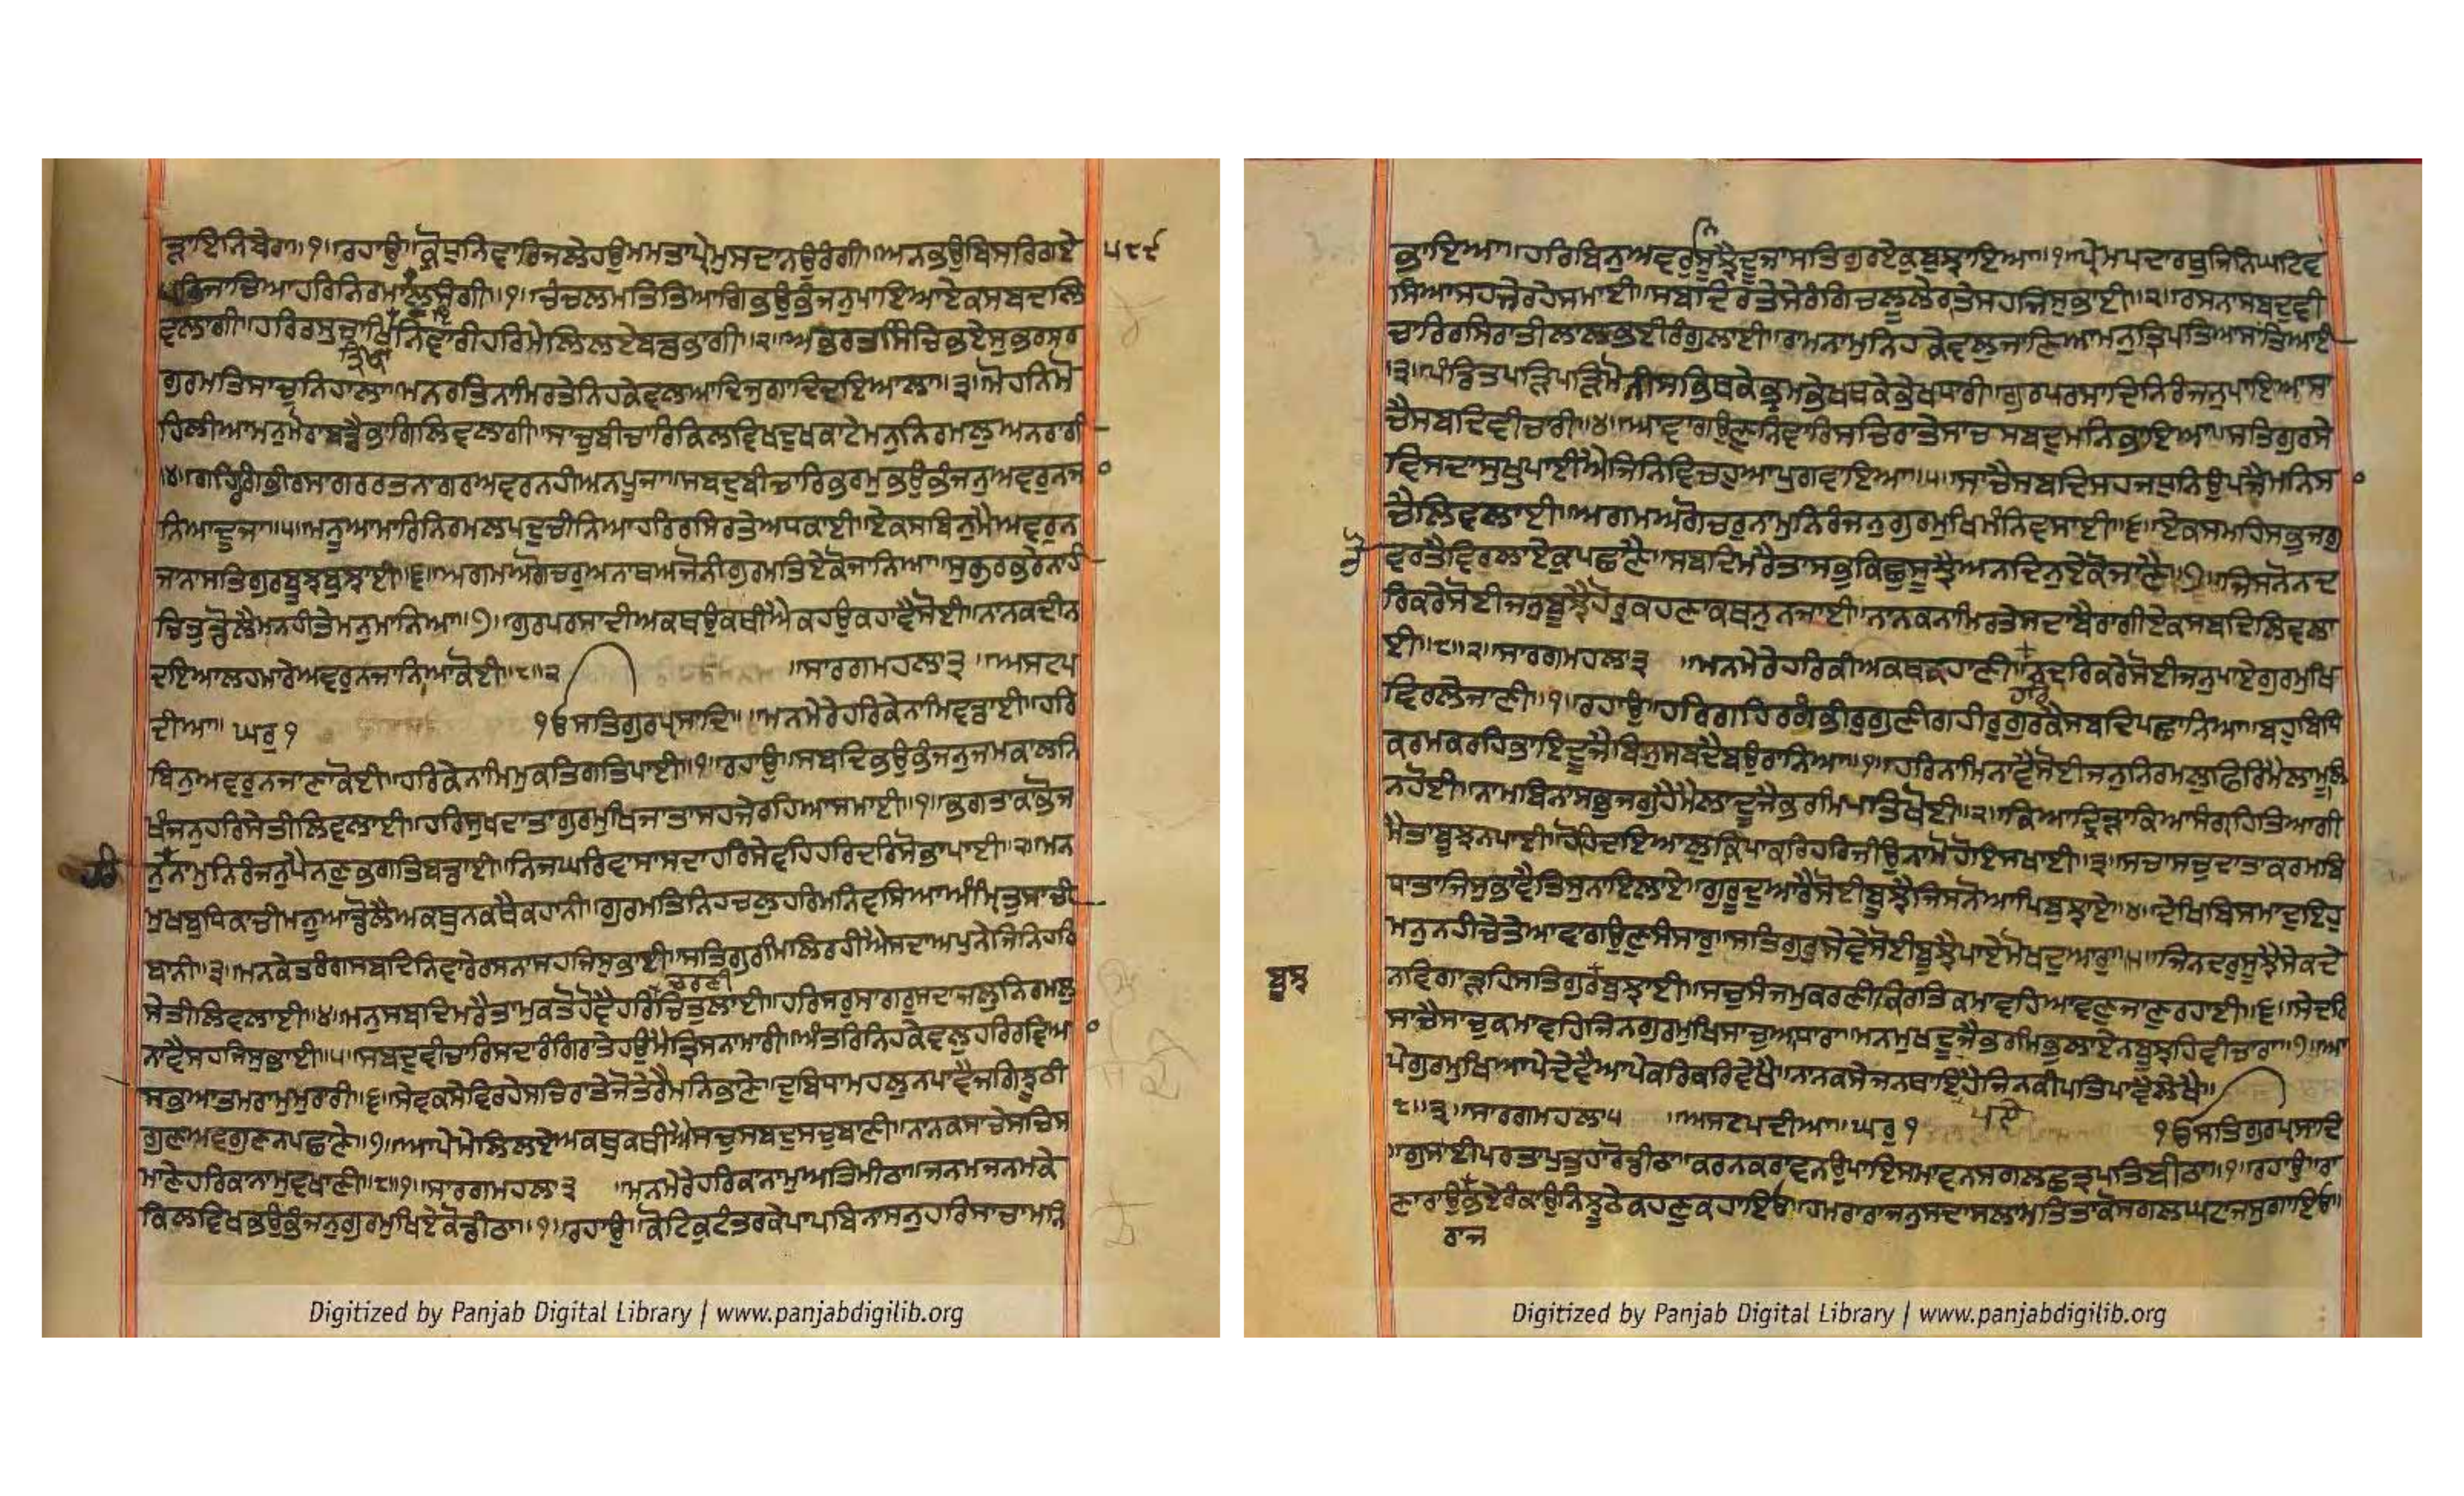 ਜਾਇਨਿਬੇਰਾ॥੧॥ਰਹਾਉ॥ਕ੍ਰੋਧੁਨਿਵਾਰਿਜਲੇਹਉਮਮਤਾਪ੍ਰੇਮੁਸਦਾਨਉਰੰਗੀ॥ਅਨਭਉਬਿਸਰਿਗਏ ੫੮੯
ਪ੍ਰਭਿਜਾਚਿਆਹਰਿਨਿਰਮਾਲੁਸੰਗੀ॥੧॥ਚੰਚਲਮਤਿਤਿਆਗਿਭਉਭੰਜਨੁਪਾਇਆਏਕਸਬਦਾਲਿ
ਵਲਾਗੀ॥ਹਰਿਰਸੁਚਾਖਿਨਿਵਾਰੀਹਰਿਮੇਲਿਲਏਬਡਭਾਗੀ॥੨॥ਅਭਰਤਸਿੰਚਿਭਏਸੁਭਰਸਰ
ਤ੍ਰਿਖਾ
ਗੁਰਮਤਿਸਾਚੁਨਿਹਾਲਾ॥ਮਨਰਤਿਨਾਮਿਰਤੇਨਿਹਕੇਵਲਆਦਿਜੁਗਾਦਿਦਇਆਲਾ॥੩॥ਮੋਹਨਿਮੋ
ਹਿਲੀਆਮਨੁਮੋਰਾਬਡੈਭਾਗਿਲਿਵਲਾਗੀ॥ਸਾਚੁਬੀਚਾਰਿਕਿਲਵਿਖਦੁਖਕਾਟੇਮਨੁਨਿਰਮਲੁਅਨਰਾਗੀ
॥੪॥ਗਹਿਰਗੰਭੀਰਸਾਗਰਰਤਨਾਗਰਅਵਰਨਹੀਅਨਪੂਜਾ॥ਸਬਦੁਬੀਚਾਰਿਭਰਮੁਭਉਭੰਜਨੁਅਵਰੁਨਜ
ਨਿਆਦੂਜਾ॥੫॥ਮਨੂਆਮਾਰਿਨਿਰਮਲਪਦੁਚੀਨਿਆਹਰਿਰਸਿਰਤੇਅਧਕਾਈ॥ਏਕਸਬਿਨੁਮੈਅਵਰੁਨ
ਜਨਾਸਤਿਗੁਰਬੂਝਬੁਝਾਈ॥੬॥ਅਗਮਅਗੋਚਰੁਅਨਾਥਅਜੋਨੀਗੁਰਮਤਿਏਕੋਜਾਨਿਆ॥ਸੁਭਰਭਰੇਨਾਹੀ
ਚਿਤੁਡੋਲੈਮਨਹੀਤੇਮਨੁਮਾਨਿਆ॥੭॥ਗੁਰਪਰਸਾਦੀਅਕਥਉਕਥੀਐਕਹਉਕਹਾਵੈਸੋਈ॥ਨਾਨਕਦੀਨ
ਦਇਆਲਹਮਾਰੇਅਵਰੁਨਜਾਨਿਆਕੋਈ॥੮॥੨ ॥ਸਾਰਗਮਹਲਾ੩ ॥ਅਸਟਪ
ਦੀਆ॥ਘਰੁ੧ ੴਸਤਿਗੁਰਪ੍ਰਸਾਦਿ॥ਮਨਮੇਰੇਹਰਿਕੇਨਾਮਿਵਡਾਈ॥ਹਰਿ
ਬਿਨੁਅਵਰੁਨਜਾਣਾਕੋਈ॥ਹਰਿਕੇਨਾਮਿਮੁਕਤਿਗਤਿਪਾਈ॥੧॥ਰਹਾਉ॥ਸਬਦਿਭਉਭੰਜਨੁਜਮਕਾਲਨਿ
ਖੰਜਨੁਹਰਿਸੇਤੀਲਿਵਲਾਈ॥ਹਰਿਸੁਖਦਾਤਾਗੁਰਮੁਖਿਜਾਤਾਸਹਜੇਰਹਿਆਸਮਾਈ॥੧॥ਭਗਤਾਕਾਭੋਜ
ਹਰਿ ਨੁਨਾਮੁਨਿਰੰਜਨੁਪੈਨਣੁਭਗਤਿਬਡਾਈ॥ਨਿਜਘਰਿਵਾਸਾਸਦਾਹਰਿਸੇਵਹਿਹਰਿਦਰਿਸੋਭਾਪਾਈ॥੨॥ਮਨ
ਮੁਖਬੁਧਿਕਾਚੀਮਨੂਆਡੋਲੈਅਕਥੁਨਕਥੈਕਹਾਨੀ॥ਗੁਰਮਤਿਨਿਹਚਲੁਹਰਿਮਨਿਵਸਿਆਅੰਮ੍ਰਿਤੁਸਾਚੀ
ਬਾਨੀ॥੩॥ਮਨਕੇਤਰੰਗਸਬਦਿਨਿਵਾਰੇਰਸਨਾਸਹਜਿਸੁਭਾਈ॥ਸਤਿਗੁਰਮਿਲਿਰਹੀਐਸਦਾਅਪੁਨੇਜਿਨਿਹਰਿ
ਚਰਣੀ
ਸੇਤੀਲਿਵਲਾਈ॥੪॥ਮਨੁਸਬਦਿਮਰੈਤਾਮੁਕਤੋਹੋਵੈਹਰਿਚਿਤੁਲਾਈ॥ਹਰਿਸਰੁਸਾਗਰੁਸਦਾਜਲੁਨਿਰਮਲੁ
ਨਾਵੈਸਹਜਿਸੁਭਾਈ॥੫॥ਸਬਦੁਵੀਚਾਰਿਸਦਾਰੰਗਿਰਾਤੇਹਉਮੈਤ੍ਰਿਸਨਾਮਾਰੀ॥ਅੰਤਰਿਨਿਹਕੇਵਲੁਹਰਿਰਵਿਆ
ਸਭੁਆਤਮਰਾਮੁਮੁਰਾਰੀ॥੬॥ਸੇਵਕਸੇਵਿਰਹੇਸਚਿਰਾਤੇਜੋਤੇਰੈਮਨਿਭਾਣੇ॥ਦੁਬਿਧਾਮਹਲੁਨਪਾਵੈਜਗਿਝੂਠੀ
ਗੁਣਅਵਗੁਣਨਪਛਾਣੇ॥੭॥ਆਪੇਮੇਲਿਲਏਅਕਥੁਕਥੀਐਸਚੁਸਬਦੁਸਚੁਬਾਣੀ॥ਨਾਨਕਸਾਚੇਸਚਿਸ
ਮਾਣੇਹਰਿਕਾਨਾਮੁਵਖਾਣੀ॥੮॥੧॥ਸਾਰਗਮਹਲਾ੩ ॥ਮਨਮੇਰੇਹਰਿਕਾਨਾਮੁਅਤਿਮੀਠਾ॥ਜਨਮਜਨਮਕੇ
ਕਿਲਵਿਖਭਉਭੰਜਨੁਗੁਰਮੁਖਿਏਕੋਡੀਠਾ॥੧॥ਰਹਾਉ॥ਕੋਟਿਕੋਟੰਤਰਕੇਪਾਪਬਿਨਾਸਨੁਹਰਿਸਾਚਾਮਨਿ
Digitized by Panjab Digital Library | www.panjabdigilib.org
ਭਾਇਆ॥ਹਰਿਬਿਨੁਅਵਰੁਸੂਝੈਦੂਜਾਸਤਿਗੁਰਏਕੁਬੁਝਾਇਆ॥੧॥ਪ੍ਰੇਮਪਦਾਰਥੁਜਿਨਿਘਟਿਵ
ਸਿਆਸਹਜੇਰਹੇਸਮਾਈ॥ਸਬਦਿਰਤੇਸੇਰੰਗਿਚਲੂਲੇਰਾਤੇਸਹਜਿਸੁਭਾਈ॥੨॥ਰਸਨਾਸਬਦੁਵੀ
ਚਾਰਿਰਸਿਰਾਤੀਲਾਲਭਈਰੰਗੁਲਾਈ॥ਰਾਮਨਾਮੁਨਿਹਕੇਵਲੁਜਾਣਿਆਮਨੁਤ੍ਰਿਪਤਿਆਸਾਂਤਿਆਈ
॥੩॥ਪੰਡਿਤਪੜ੍ਹਿਪੜ੍ਹਿਮੋਨੀਸਭਿਥਕੇਭ੍ਰਮਭੇਖਥਕੇਭੇਖਧਾਰੀ॥ਗੁਰਪਰਸਾਦਿਨਿਰੰਜਨੁਪਾਇਆਸਾ
ਚੈਸਬਦਿਵੀਚਾਰੀ॥੪॥ਆਵਾਗਉਣੁਨਿਵਾਰਿਸਚਿਰਾਤੇਸਾਚਸਬਦੁਮਨਿਭਾਇਆ॥ਸਤਿਗੁਰਸੇ
ਵਿਸਦਾਸੁਖੁਪਾਈਐਜਿਨਿਵਿਚਹੁਆਪੁਗਵਾਇਆ॥੫॥ਸਾਚੈਸਬਦਿਸਹਜਧੁਨਿਉਪਜੈਮਨਿਸ
ਚੈਲਿਵਲਾਈ॥ਅਗਮਅਗੋਚਰੁਨਾਮੁਨਿਰੰਜਨੁਗੁਰਮੁਖਿਮੰਨਿਵਸਾਈ॥੬॥ਏਕਸਮਹਿਸਭੁਜਗੁ
ਵਰਤੈਵਿਰਲਾਏਕੁਪਛਾਣੈ॥ਸਬਦਿਮਰੈਤਾਸਭੁਕਿਛੁਸੂਝੈਅਨਦਿਨੁਏਕੋਜਾਣੈ॥੭॥ਜਿਸਨੋਨਦ
ਰਿਕਰੇਸੋਈਜਨੁਬੂਝੈਹੋਰੁਕਹਣਾਕਥਨੁਨਜਾਈ॥ਨਾਨਕਨਾਮਿਰਤੇਸਦਾਬੈਰਾਗੀਏਕਸਬਦਿਲਿਵਲਾ
ਈ॥੮॥੨॥ਸਾਰਗਮਹਲਾ੩ ॥ਮਨਮੇਰੇਹਰਿਕੀਅਕਥਕਹਾਣੀ॥ਨਦਰਿਕਰੇਸੋਈਜਨੁਪਾਏਗੁਰਮੁਖਿ
ਵਿਰਲੈਜਾਣੀ॥੧॥ਰਹਾਉ॥ਹਰਿਗਹਿਰਗੰਭੀਰੁਗੁਣੀਗਹੀਰੁਗੁਰਕੈਸਬਦਿਪਛਾਨਿਆ॥ਬਹੁਬਿਧਿ
ਕਰਮਕਰਹਿਭਾਇਦੂਜੈਬਿਨੁਸਬਦੈਬਉਰਾਨਿਆ॥੧॥ਹਰਿਨਾਮਿਨਾਵੈਸੋਈਜਨੁਨਿਰਮਲੁਫਿਰਿਮੈਲਾਮੂਲਿ
ਨਹੋਈ॥ਨਾਮਬਿਨਾਸਭੁਜਗੁਹੈਮੈਲਾਦੂਜੈਭਰਮਿਪਤਿਖੋਈ॥੨॥ਕਿਆਦ੍ਰਿੜਾਕਿਆਸੰਗ੍ਰਹਿਤਿਆਗੀ
ਮੈਤਾਬੂਝਨਪਾਈ॥ਹੋਹਿਦਇਆਲੁਕ੍ਰਿਪਾਕਰਿਹਰਿਜੀਉਨਾਮੋਹੋਇਸਖਾਈ॥੩॥ਸਚਾਸਚੁਦਾਤਾਕਰਮਬਿ
ਧਾਤਾਜਿਸੁਭਾਵੈਤਿਸੁਨਾਇਲਾਏ॥ਗੁਰੂਦੁਆਰੈਸੋਈਬੂਝੈਜਿਸਨੋਆਪਿਬੁਝਾਏ॥੪॥ਦੇਖਿਬਿਸਮਾਦੁਇਹੁ
ਮਨੁਨਹੀਚੇਤੇਆਵਾਗਉਣੁਸੰਸਾਰਾ॥ਸਤਿਗੁਰੁਸੇਵੇਸੋਈਬੂਝੈਪਾਏਮੋਖਦੁਆਰਾ॥੫॥ਜਿਨਦਰੁਸੂਝੈਸੇਕਦੇ
ਬੂਝ ਨਵਿਗਾੜਹਿਸਤਿਗੁਰਬੁਝਾਈ॥ਸਚੁਸੰਜਮੁਕਰਣੀਕਿਰਤਿਕਮਾਵਹਿਆਵਣੁਜਾਣੁਰਹਾਈ॥੬॥ਸੇਦਰਿ
ਸਾਚੈਸਾਚੁਕਮਾਵਹਿਜਿਨਗੁਰਮੁਖਿਸਾਚੁਅਧਾਰਾ॥ਮਨਮੁਖਦੂਜੈਭਰਮਿਭੁਲਾਏਨਬੂਝਹਿਵੀਚਾਰਾ॥੭॥ਆ
ਪੇਗੁਰਮੁਖਿਆਪੇਦੇਵੈਆਪੇਕਰਿਕਰਿਵੇਖੈ॥ਨਾਨਕਸੇਜਨਥਾਇਹੈਜਿਨਕੀਪਤਿਪਾਵੈਲੇਖੈ॥
੮॥੩॥ਸਾਰਗਮਹਲਾ੫ ॥ਅਸਟਪਦੀਆ॥ਘਰੁ੧ ੴਸਤਿਗੁਰਪ੍ਰਸਾਦਿ
॥ਗੁਸਾਈਪਰਤਾਪੁਤੁਹਾਰੋਡੀਠਾ॥ਕਰਨਕਰਾਵਨਉਪਾਇਸਮਾਵਨਸਗਲਛਤ੍ਰਪਤਿਬੀਠਾ॥੧॥ਰਹਾਉ॥ਰਾ
ਣਾਰਾਉਭਏਰੰਕਾਉਨਿਝੂਠੇਕਹਣੁਕਹਾਇਓ॥ਹਮਰਾਰਾਜਨੁਸਦਾਸਲਾਮਤਿਤਾਕੋਸਗਲਘਟਾਜਸੁਗਾਇਓ॥
ਰਾਜ
Digitized by Panjab Digital Library | www.panjabdigilib.org